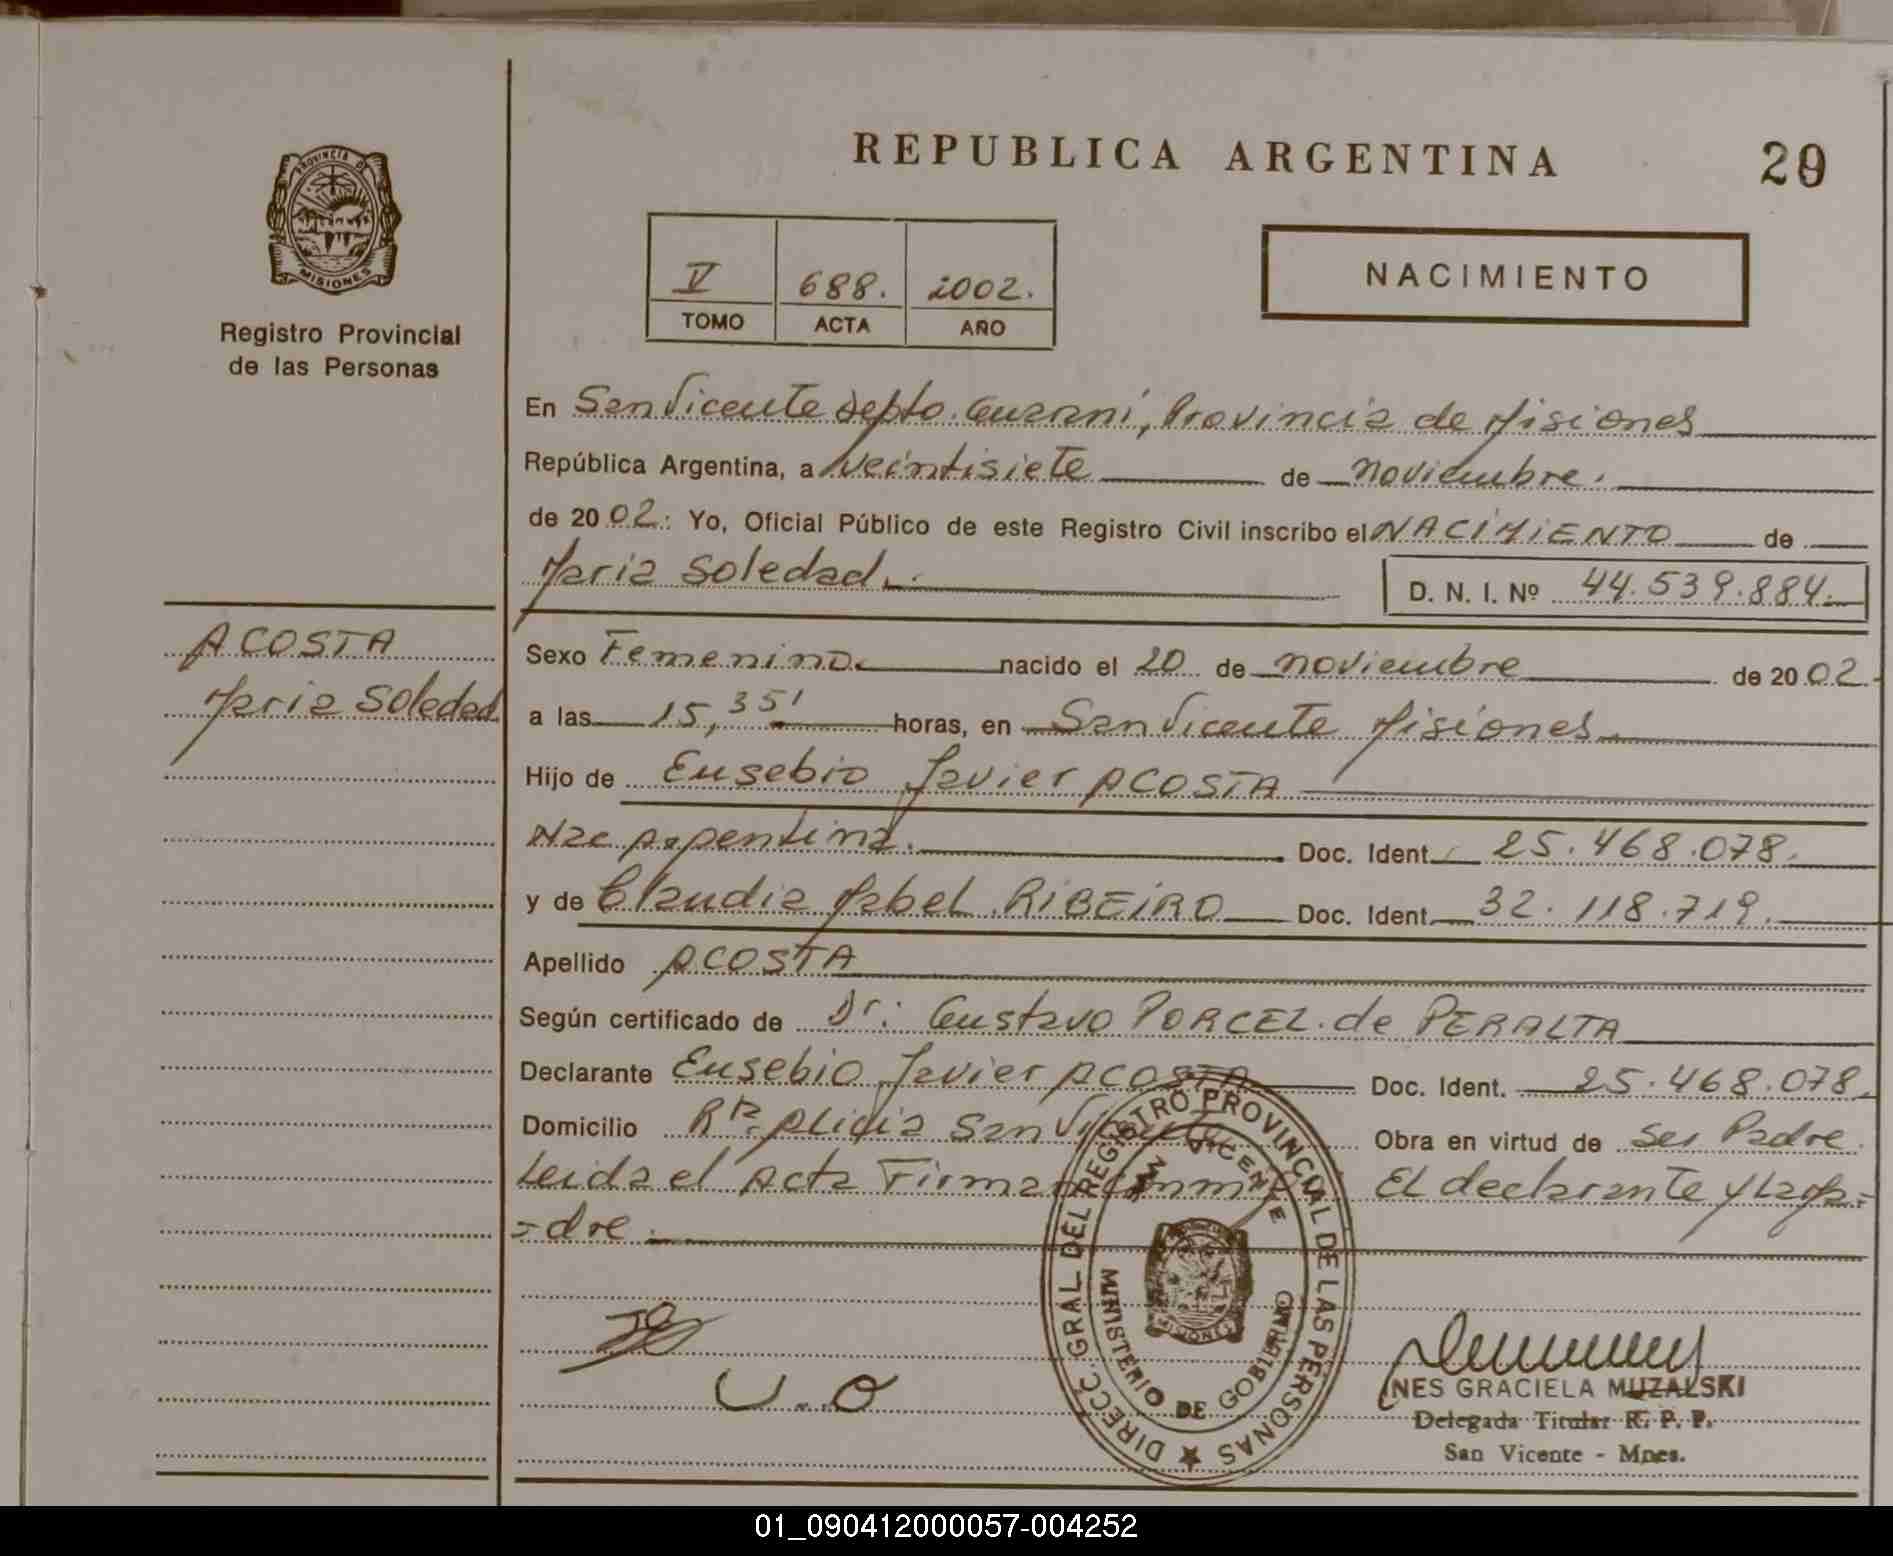 REPUBLICA ARGENTINA
29
PROVINCIA DE
MISIONES
Registro Provincial
de las Personas
V 688. 2002.
TOMO ACTA AÑO
NACIMIENTO
En San Vicente Depto. Guaraní, Provincia de Misiones
República Argentina, a veintisiete de noviembre.
de 2002: Yo, Oficial Público de este Registro Civil inscribo el NACIMIENTO de
Maria Soledad.
D. N. I. Nº 44.539.884.
ACOSTA
Maria Soledad
Sexo Femenino. nacido el 20 de noviembre de 2002.
a las 15,35' horas, en San Vicente Misiones.
Hijo de Eusebio Javier ACOSTA
Nac Argentina. Doc. Ident. 25.468.078.
y de Claudia Mabel RIBEIRO Doc. Ident. 32.118.719.
Apellido ACOSTA
Según certificado de Dr: Gustavo PORCEL de PERALTA
Declarante Eusebio Javier ACOSTA Doc. Ident. 25.468.078.
Domicilio Bº Alicia San Vicente Obra en virtud de ser Padre.
Leida el Acta Firman conmigo El declarante y La Ma=
=dre.
DIRECC. GRAL. DEL REGISTRO PROVINCIAL DE LAS PERSONAS
SAN VICENTE
MINISTERIO DE GOBIERNO
MISIONES
INES GRACIELA MUZALSKI
Delegada Titular R. P. P.
San Vicente - Mnes.
01_090412000057-004252